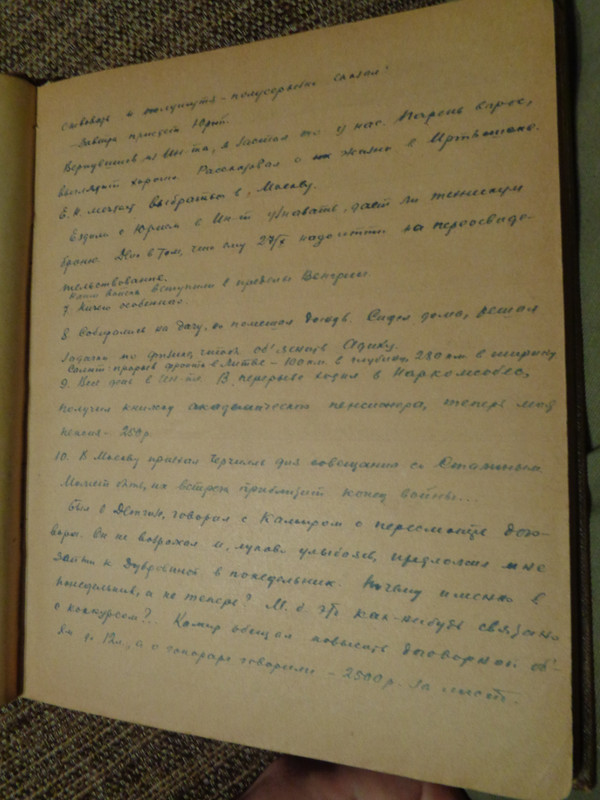 ствовать и полусерьезно сказал:
— Завтра приедет Юрий.
Вернувшись из Ин-та, я застал его у нас. Парень вырос,
выглядит хорошо. Рассказывал о жизни в Иртышске.
Е.Н. мечтает выбраться в Москву.
Ездил с Юрием в Ин-т узнавать, дает ли техникум
броню. Дело в том, что ему 27/X надо идти на переосвиде-
тельствование.
Наши войска вступили в пределы Венгрии
7. Ничего особенного.
8. Собирались на дачу, но помешал дождь. Сидел дома, решал
задачи по физике, чтоб объяснить Адику.
Сообщ. прорыв фронта в Литве – 100 км. в глубину, 280 км в ширину.
9. Весь день в Ин-те. В перерыве ходил в Наркомсобес,
получил книжку академического пенсионера, теперь моя
пенсия – 250 р.
10. В Москву приехал Черчилль для совещания со Сталиным.
Может быть, их встреча приблизит конец войны...
Был в Детгизе, говорил с Камиром о пересмотре дого-
вора. Он не возражал и, лукаво улыбаясь, предложил мне
зайти к Дубровиной в понедельник. Почему именно в
понедельник, а не теперь? М.б. это как-нибудь связано
с конкурсом?.. Камир обещал повысить договорной об'-
ем до 12 л., а о гонораре говорили – 2500 р. за лист.